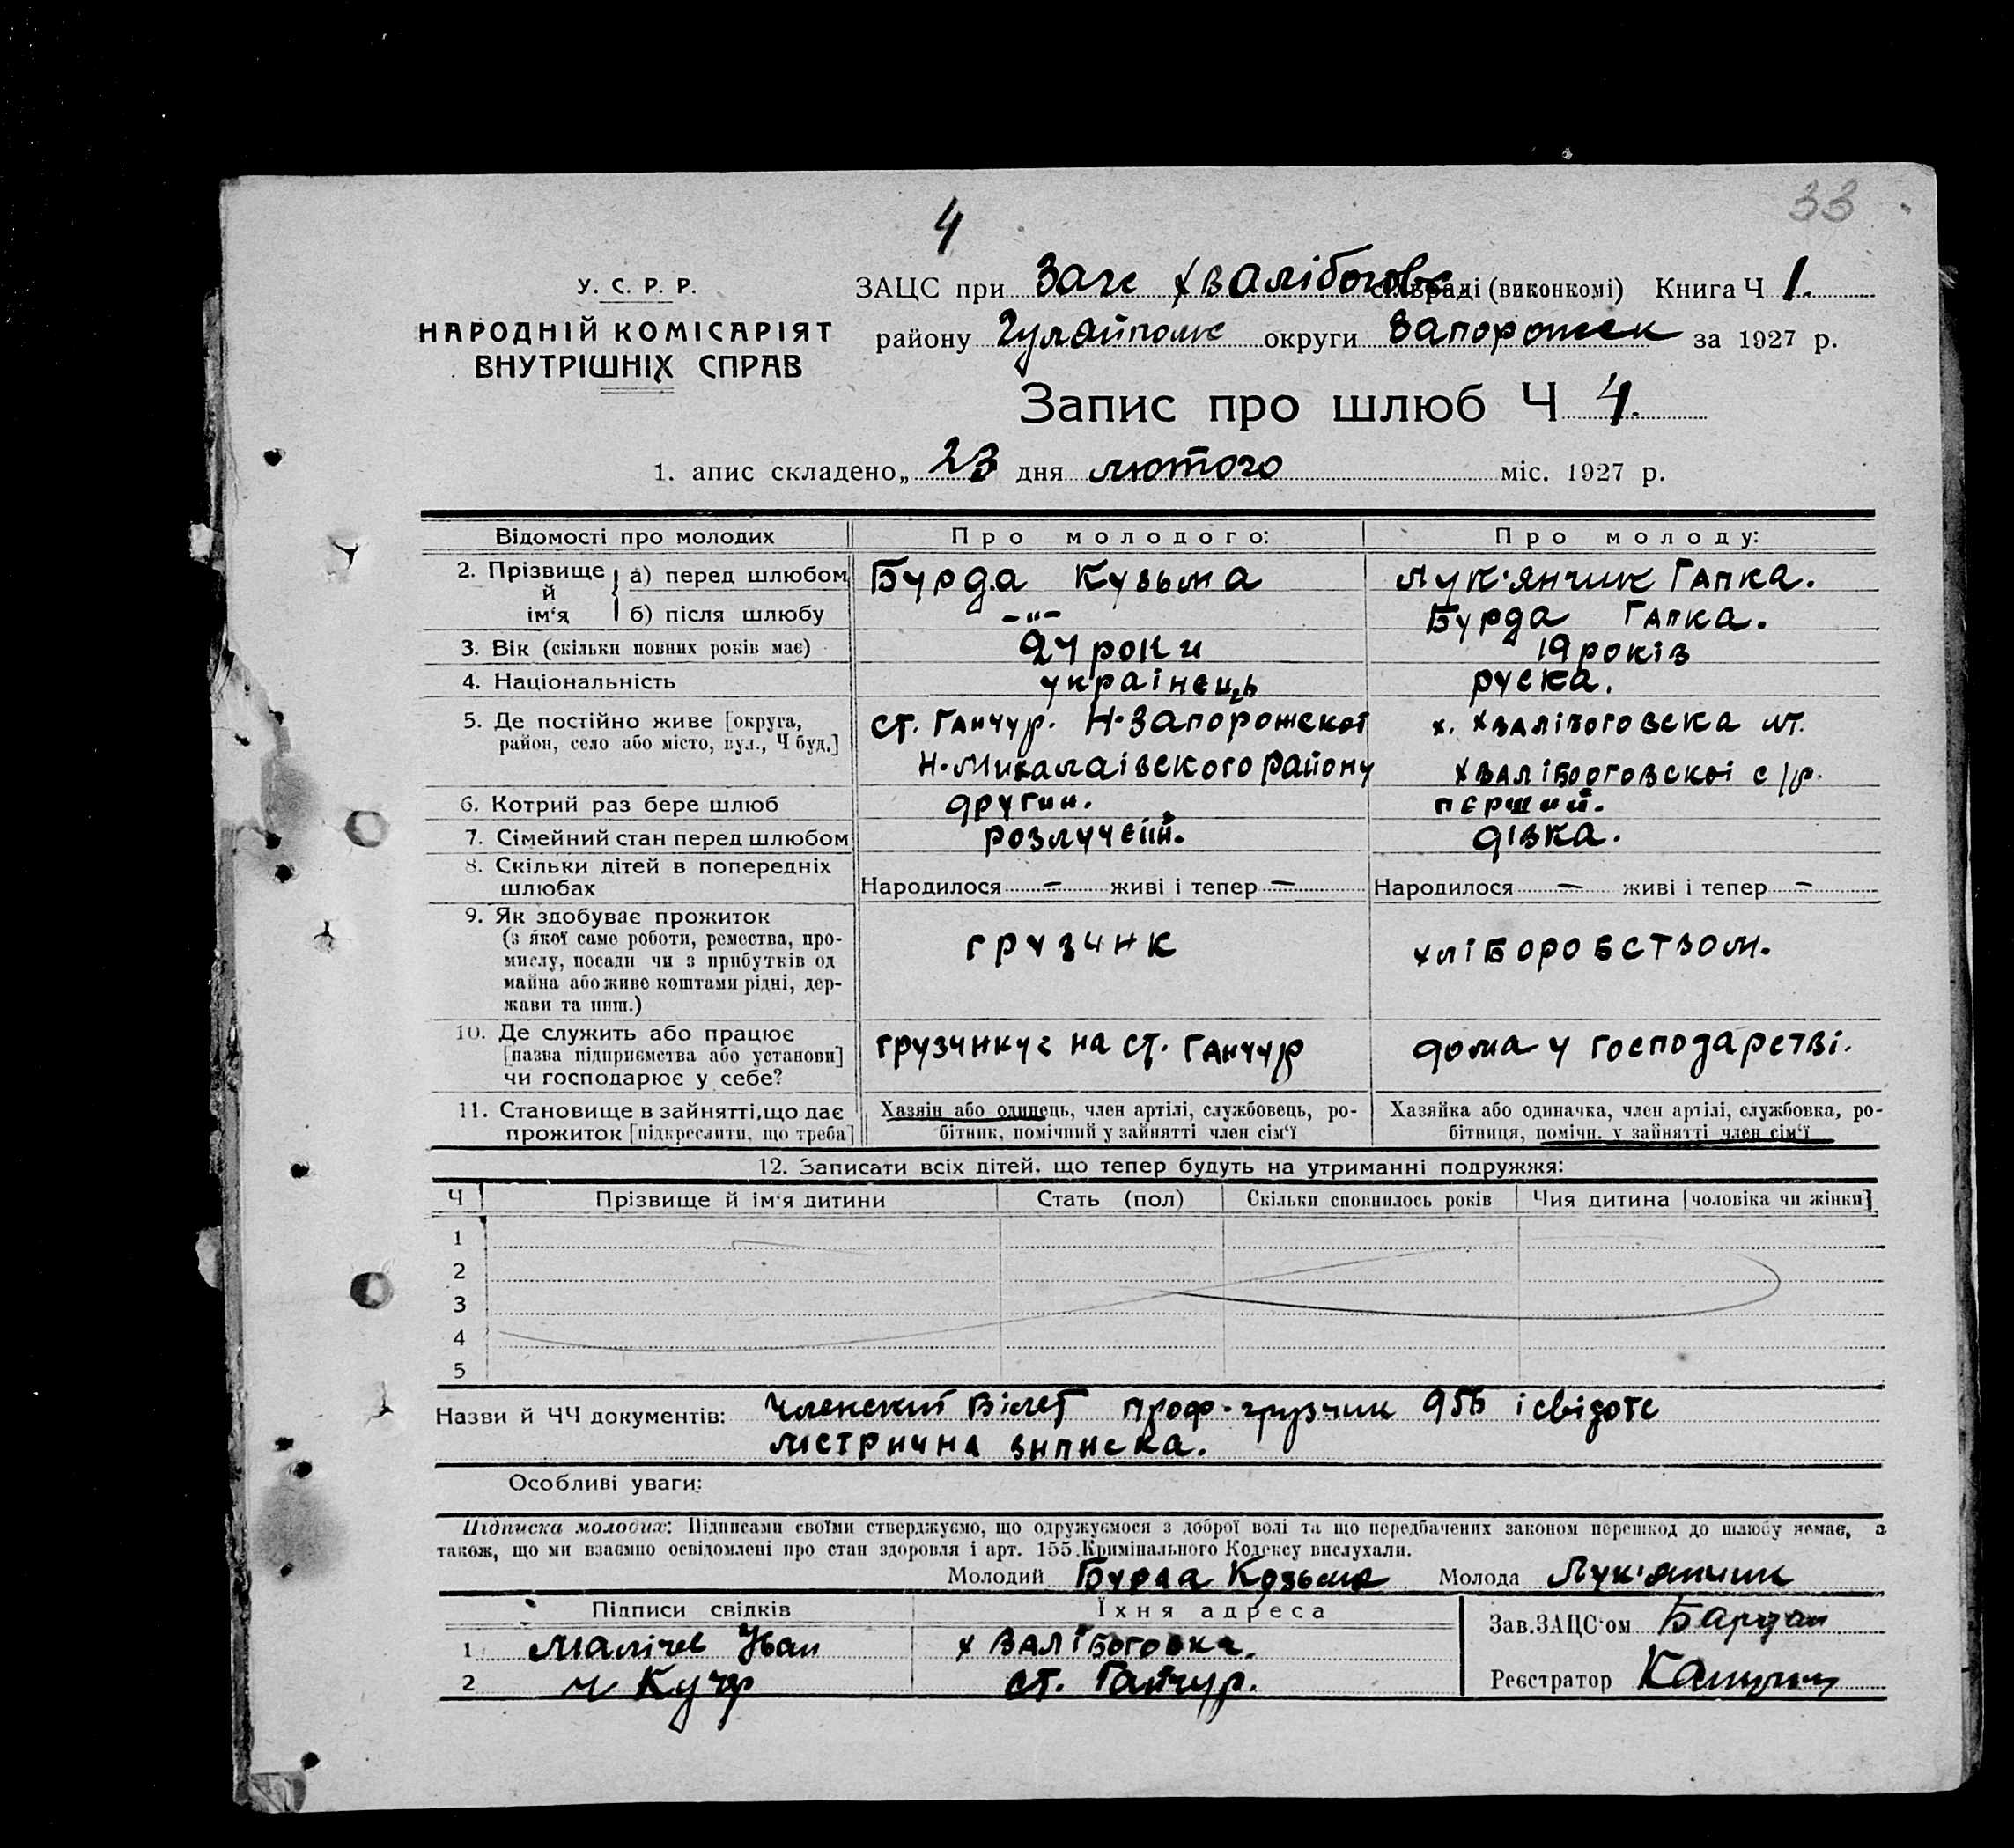 33
4
У. С. Р. Р.
НАРОДНІЙ КОМІСАРІЯТ
ВНУТРІШНІХ СПРАВ
ЗАЦС при Загс Хвалібогов. сільраді (виконкомі) Книга Ч 1.
району Гуляйполе округи Запорожек за 1927 р.
Запис про шлюб Ч 4.
1. апис складено „ 23 дня лютого міс. 1927 р.
Відомості про молодих Про молодого: Про молоду:
2. Прізвище й ім'я а) перед шлюбом Бурда Кузьма Лук'янчик Гапка.
б) після шлюбу -"- Бурда Гапка.
3. Вік (скільки повних років має) 24 роки 19 років
4. Національність українець руска.
5. Де постійно живе [округа, ст. Ганчур. Н-Запорожскої х. Хвалібоговска
район, село або місто, вул., Ч буд.] Н-Михалаівского району Хвалібоговскоі с/р.
6. Котрий раз бере шлюб другий. перший.
7. Сімейний стан перед шлюбом розлучений. дівка.
8. Скільки дітей в попередніх
шлюбах Народилося — живі і тепер — Народилося — живі і тепер —
9. Як здобуває прожиток
(з якої саме роботи, ремества, про-
мислу, посади чи з прибутків од
майна або живе коштами рідні, дер-
жави та инш.) грузчик хліборобством.
10. Де служить або працює
[назва підприємства або установи]
чи господарює у себе? грузчикує на ст. Ганчур дома у господарстві.
11. Становище в зайнятті, що дає Хазяін або одинець, член артілі, службовець, ро- Хазяйка або одиначка, член артілі, службовка, ро-
прожиток [підкреслити, що треба] бітник, помічний у зайнятті член сім'ї бітниця, помічн. у зайнятті член сім'ї
12. Записати всіх дітей, що тепер будуть на утриманні подружжя:
Ч Прізвище й ім'я дитини Стать (пол) Скільки сповнилось років Чия дитина [чоловіка чи жінки]
1
2
3
4
5
Назви й ЧЧ документів: Членский білет проф-грузчик і свідоте
метрична виписка.
Особливі уваги:
Підписка молодих: Підписами своїми стверджуємо, що одружуємося з доброї волі та що передбачених законом перешкод до шлюбу немає, а
також, що ми взаємно освідомлені про стан здоровля і арт. 155 Кримінального Кодексу вислухали.
Молодий Бурда Козьма Молода Лук'янчик
Підписи свідків Їхня адреса Зав. ЗАЦС'ом
1 Іван Хвалібоговка.
2 ст. Гайчур. Реєстратор